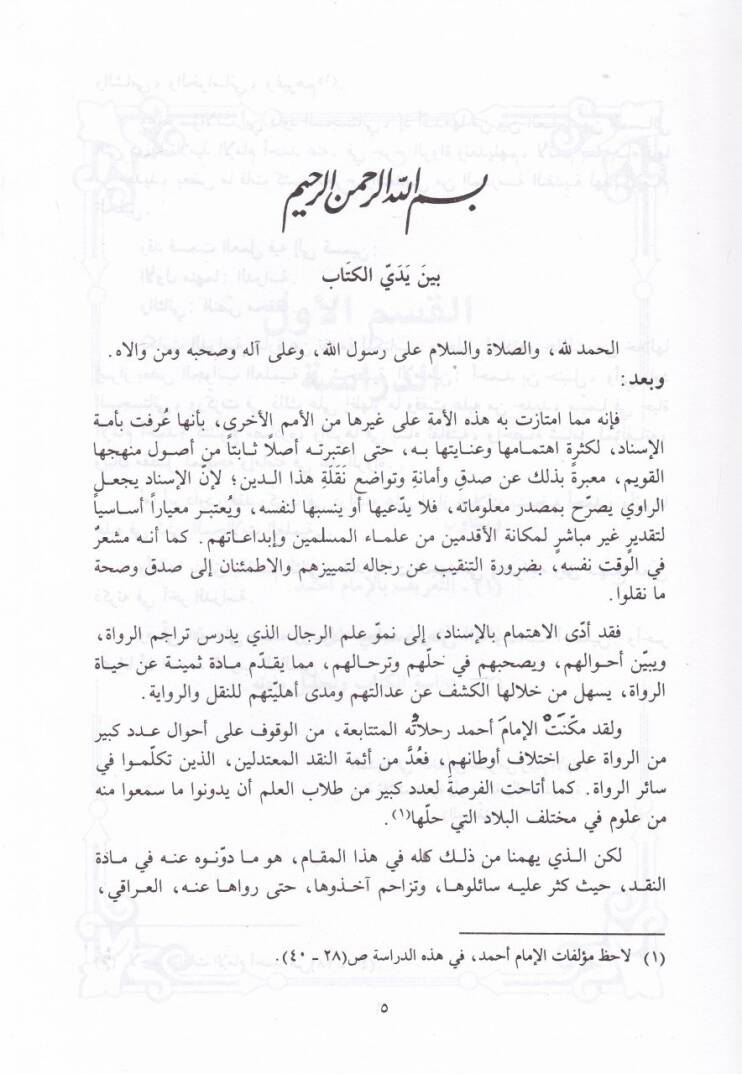 بسم الله الرحمن الرحيم
بينَ يَدَيّ الكتَاب
الحمد لله، والصلاة والسلام على رسول الله، وعلى آله وصحبه ومن والاه.
وبعد:
فإنه مما امتازت به هذه الأمة على غيرها من الأمم الأخرى، بأنها عُرفت بأمة
الإسناد، لكثرةِ اهتمامها وعنايتها به، حتى اعتبرته أصلاً ثابتاً من أصول منهجها
القويم، معبرةً بذلك عن صدقِ وأمانةِ وتواضع نَقَلَةِ هذا الدين؛ لإنّ الإسناد يجعل
الراوي يصرّح بمصدر معلوماته، فلا يدّعيها أو ينسبها لنفسه، ويُعتبر معياراً أساسياً
لتقديرٍ غير مباشرٍ لمكانة الأقدمين من علماء المسلمين وإبداعاتهم. كما أنه مشعرٌ
في الوقت نفسه، بضرورة التنقيب عن رجاله لتمييزهم والاطمئنان إلى صدق وصحة
ما نقلوا.
فقد أدّى الاهتمام بالإسناد، إلى نموّ علم الرجال الذي يدرس تراجم الرواة،
ويبيّن أحوالهم، ويصحبهم في حلّهم وترحالهم، مما يقدّم مادة ثمينة عن حياة
الرواة، يسهل من خلالها الكشف عن عدالتهم ومدى أهليّتهم للنقل والرواية.
ولقد مكّنَتْ الإمامَ أحمد رحلاتُه المتتابعة، من الوقوف على أحوال عدد كبير
من الرواة على اختلاف أوطانهم، فعُدَّ من أئمة النقد المعتدلين، الذين تكلّموا في
سائر الرواة. كما أتاحت الفرصةَ لعدد كبير من طلاب العلم أن يدونوا ما سمعوا منه
من علوم في مختلف البلاد التي حلّها(١).
لكن الذي يهمنا من ذلك كله في هذا المقام، هو ما دوّنوه عنه في مادة
النقد، حيث كثر عليه سائلوها، وتزاحم آخذوها، حتى رواها عنه، العراقي،
(١) لاحظ مؤلفات الإمام أحمد، في هذه الدراسة ص(٢٨ - ٤٠).
٥